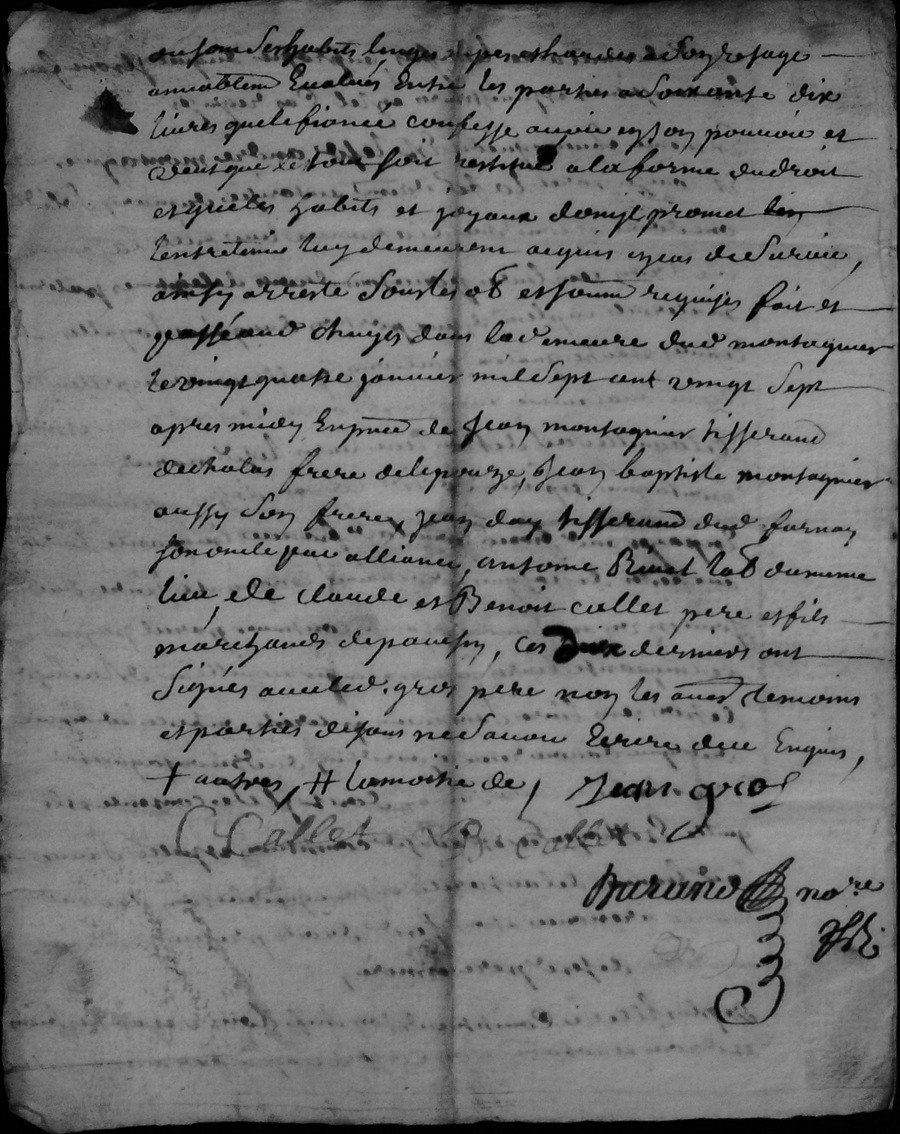 en sont ses habits linges nipes et hardes a son usage
amiablem Evalués Entre les parties a soixante dix
livres que le fiancé confesse avoir en son pouvoir et
veut que le tout soit restitué a la forme du droit
et que les habits et joyaux dont il promet
l'entretenir luy demeurent acquis en cas de survie,
ainsy arresté sous les ob et soum requises fait et
passé aud chuyes dans la demeure dud montagnier
le vingt quatre janvier mil sept cent vingt sept
apres midy En pnce de Jean montagnier tisserand
de chalas frere de lepouze, Jean baptiste montagnier
aussy son frere, jean day tisserand dud furnon
son oncle par alliance, antoine Rivet lab du meme
lieu, de claude et Benoit collet pere et fils
marchands de pavesin, ces deux derniers ont
signés avec led. gros pere non les autres temoins
et parties disans ne savoir Ecrire de ce Enquis,
+ autres, # la moitié de, Jean gros
C Callet B Callet
Durand nore